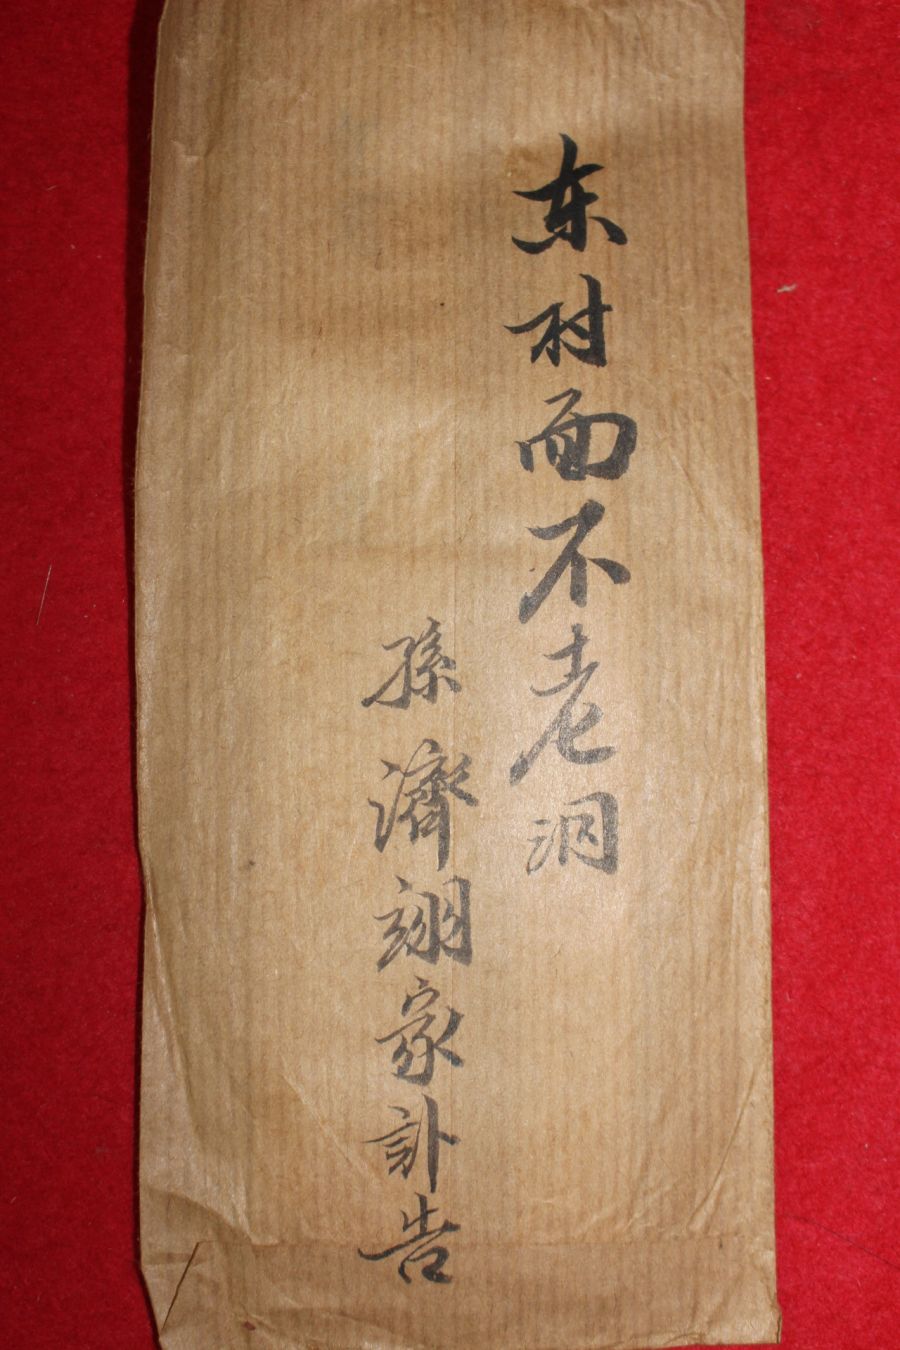 東村面不老洞
孫濟翊家訃告